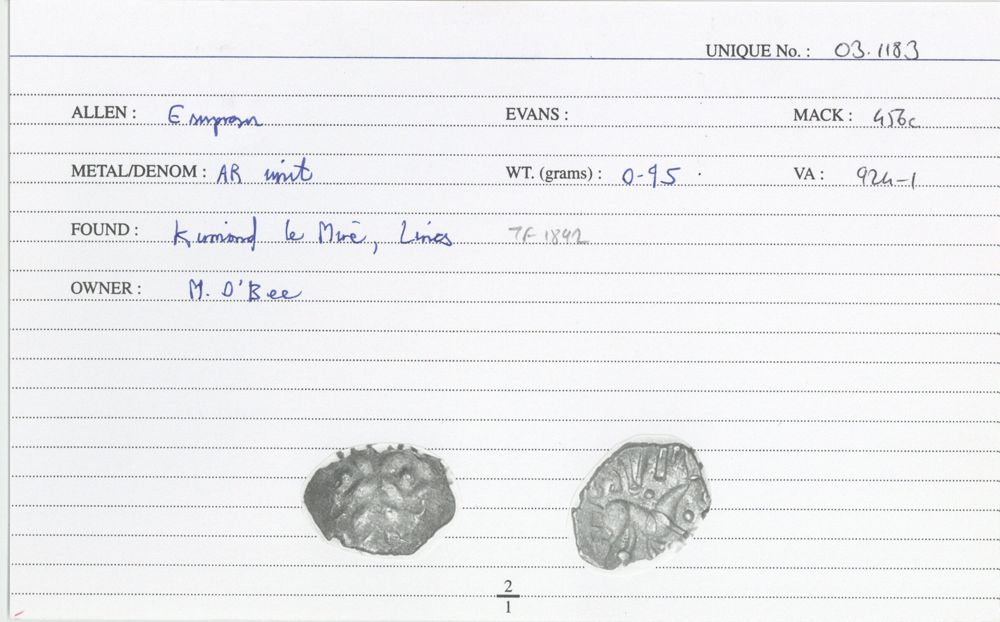 UNIQUE No. : 03.1183
ALLEN : EVANS : MACK : 456c
METAL/DENOM : AR unit WT. (grams) : 0-95 VA : 924-1
FOUND : le Mire, Lincs TF 1892
OWNER : M. D'Bee
2
1